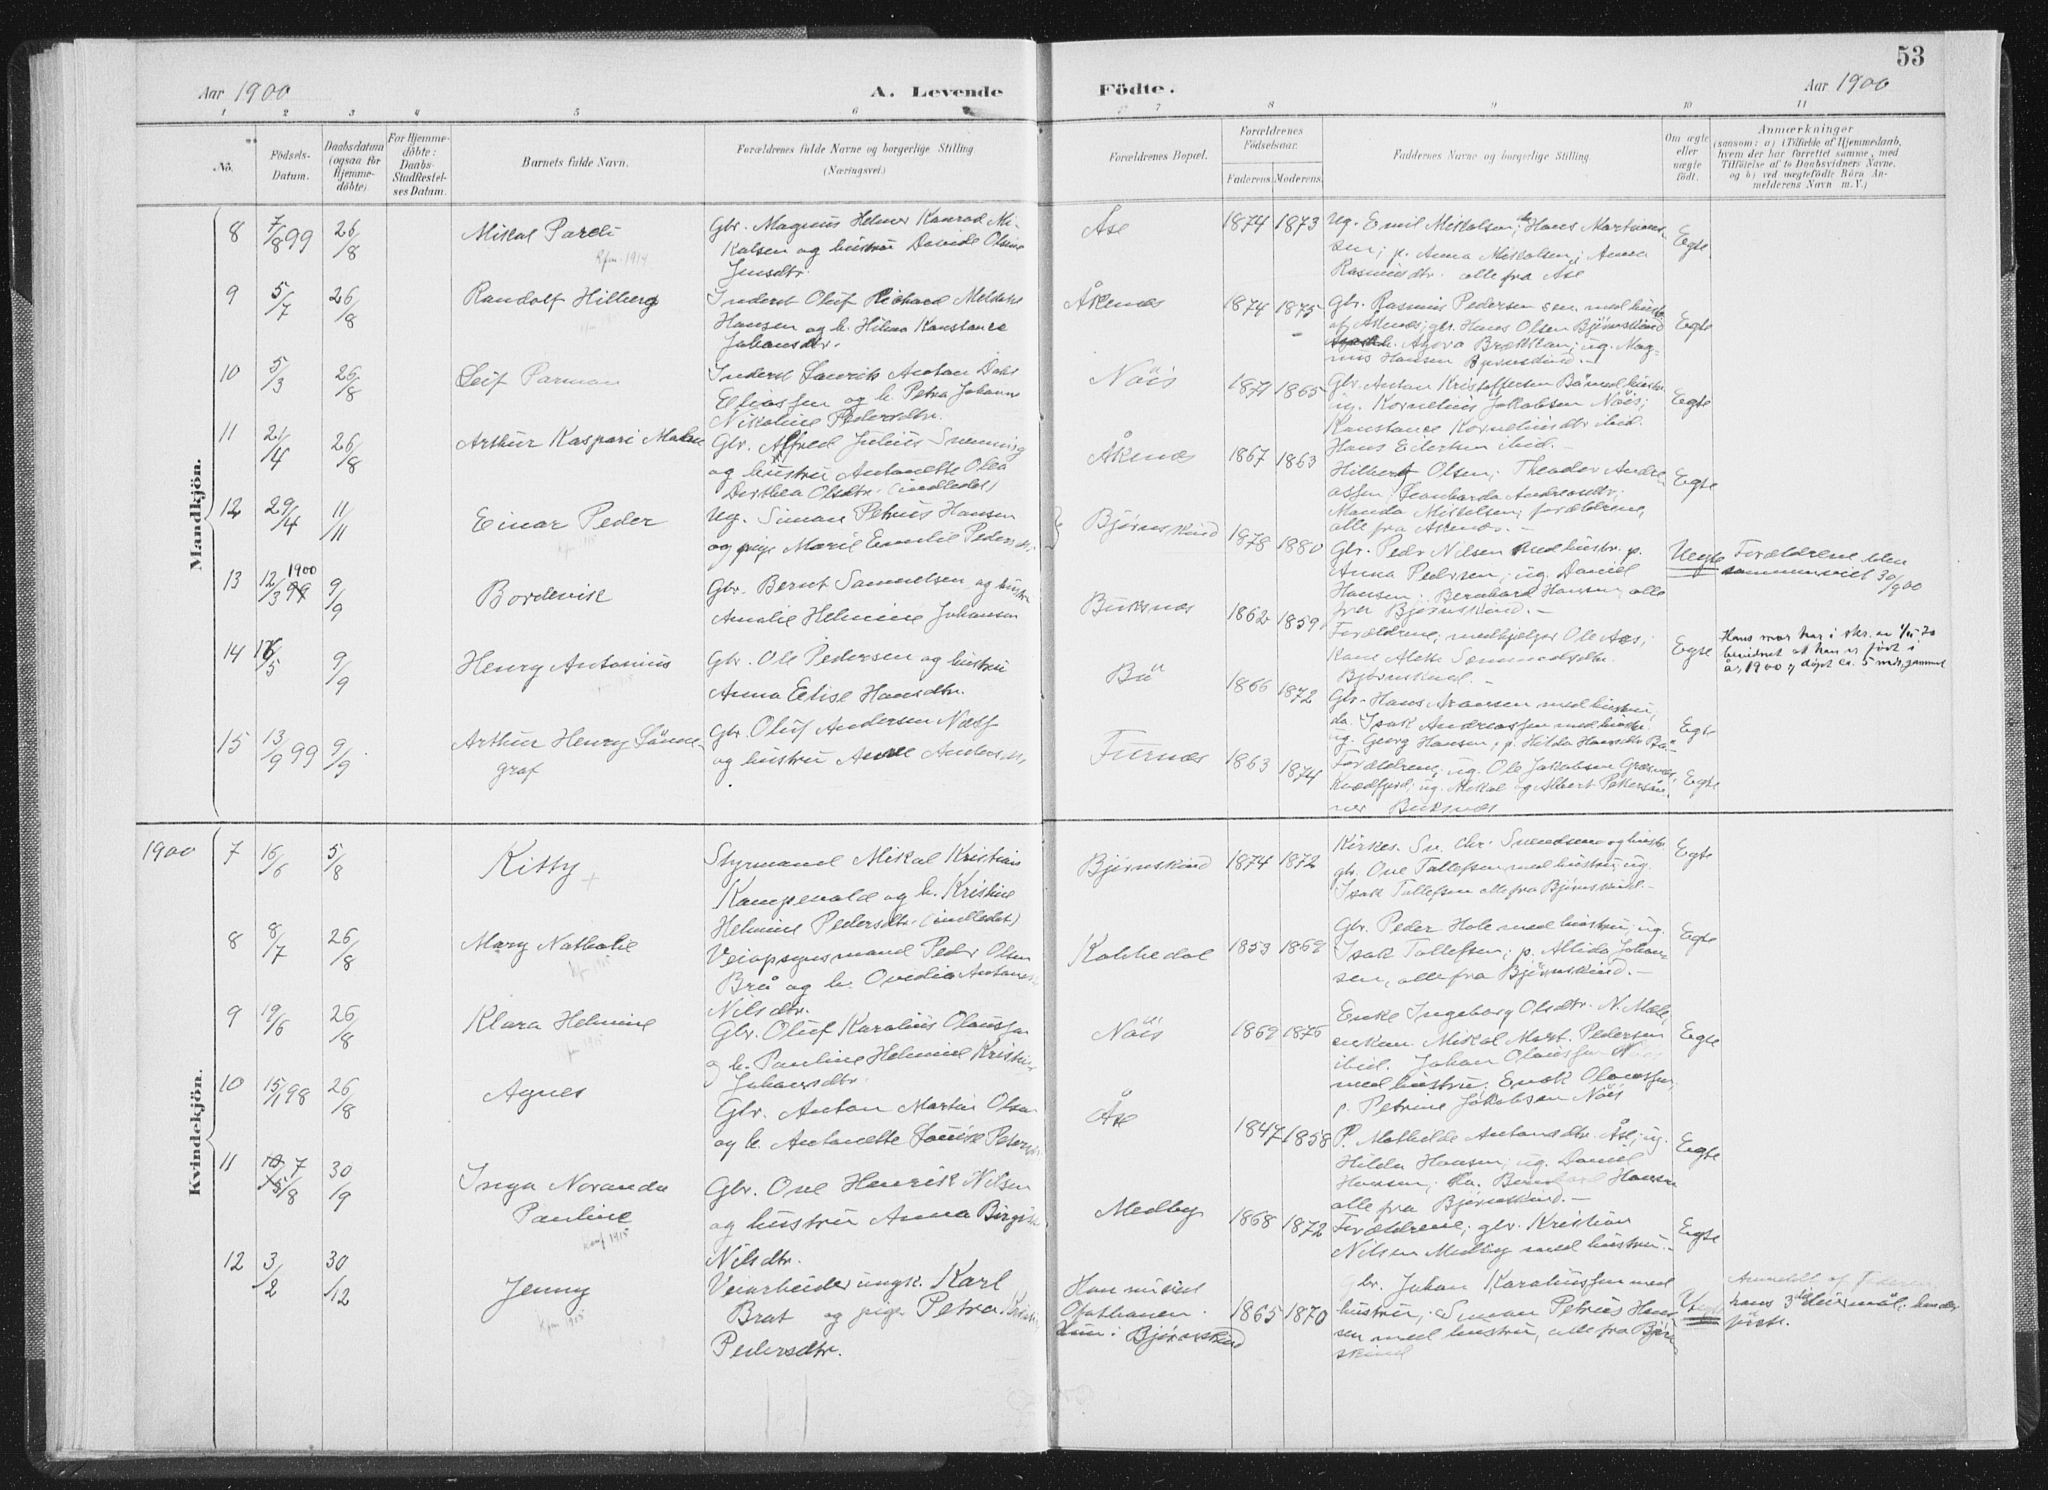 53
Aar 1900
A. Levende
Födte.
Aar 1900
1 2 3 4 5 6 7 8 9 10 11
No.
Födsels-
Datum.
Daabsdatum
(ogsaa for
Hjemme-
döbte).
For Hjemme-
döbte:
Daabs-
Stadfæstel-
ses Datum.
Barnets fulde Navn.
Forældrenes fulde Navne og borgerlige Stilling
(Næringsvei.)
Forældrenes Bopæl.
Forældrenes
Födselsaar.
Faderens. Moderens.
Faddernes Navne og borgerlige Stilling.
Om ægte
eller
uægte
födt.
Anmærkninger
(saasom: a) i Tilfælde af Hjemmedaab,
hvem der har forrettet samme, med
Tilföielse af to Daabsvidners Navne,
og b) ved uægtefödte Börn An-
melderens Navn m. V.)
Mandkjön.
8 7/8 99 26/8 Mikal Pareli
Gbr. Magnus Helmer Konrad Mi-
kalsen og hustru Davide Olsine
Jensdtr.
Åse 1874 1873
Ug. Emil Mikalsen; Hans Martinus-
sen; p. Anna Mikalsen; Anna
Rasmusdtr. alle fra Åse
Egte
kfm. 1914
9 5/7 26/8 Randolf Hilberg
Inderst Oluf Richard Meldahl
Hansen og h. Hilma Konstance
Johansdtr.
Åkenæs 1874 1875
Gbr. Rasmus Pedersen sen. med hustr.
af Åknæs; gbr. Hans Olsen Bjørnskind
Agora Brækkan; ug. Mag-
nus Hansen Bjørnskind.
Egte
10 5/3 26/8 Leif Parman
Inderst Laurits Anton Dahl
Eliassen og h. Petra Johanne
Nikoline Pedersdtr.
Nöis 1871 1865
Gbr. Anton Kristoffersen Bö med hustr.
ug. Kornelius Jakobsen Nöis;
Konstance Korneliusdtr ibid.
Hans Eilertsen ibid.
Egte
11 21/4 26/8 Arthur Kaspari
Gbr. Alfred Julius Svenning
og hustru Antonette Olea
Dorthea Olsdtr. (indledet)
Åkenæs 1867 1863
Hilbert Olsen; Theodor Andre-
assen; Leonharda Andreasdtr;
Manda Mikkelsen; forældrene,
alle fra Åkenæs.
Egte
12 29/4 11/11 Einar Peder
Ug. Simon Petrus Hansen
og pige Marie Emilie Pedersdtr.
Bjørnskind 1878 1880
Gbr. Peder Nilsen med hustr. p.
Anna Pedersen; ug. Daniel
Hansen; Bernhard Hansen, alle
fra Bjørnskind.
Uegte
Forældrene blev
sammenviet 30/9 00
kfm. 1915
13 12/3 99 1900 9/9 Bordevik
Gbr. Bernt Samuelsen og hustru
Amalie Helmine Johansen
Buksnæs 1862 1859
Forældrene, medhjelper Ole Aas;
Kone Alette
Bjørnskind.
Egte
Hans mor har i skr. av
bevidnet at han er født i
år 1900 og døpt ca. 5 mdr. gammel
14 16/5 9/9 Henry Antonius
Gbr. Ole Pedersen og hustru
Anna Elise Hansdtr.
Bö 1866 1872
Gbr. Hans Aronsen med hustru,
do. Isak Andreassen med hustr.
ug. Georg Hansen; p. Hilda Hansdtr Bö
Egte
15 13/9 99 9/9 Arthur Henry Lönne-
graf
Gbr. Oluf Andersen Næss
og hustru Anne Andersdtr.
Furnæs 1863 1874
Forældrene; ug. Ole Jakobsen Græsnæs,
Kvædfjord; ug. Mikal og Albert
Buksnæs
Egte
Kvindekjön.
1900 7 16/6 5/8 Kitty
Styrmand Mikal Kristian
Kampevold og h. Kristine
Helmine Pedersdtr. (indledet)
Bjørnskind 1874 1872
Kirkes. Sv. Chr. Svendsen og hustr.
gbr. Ove Tollefsen med hustru, ug.
Isak Tollefsen alle fra Bjørnskind.
Egte
8 8/7 26/8 Mary Nathalie
Veiopsynsmand Peder Olsen
Brå og h. Ovedia Antonette
Nilsdtr.
Kobbedal 1853 1862
Gbr. Peder Hole med hustru, ug.
Isak Tollefsen; p. Altida Johan-
sen, alle fra Bjørnskind.
Egte
kfm 1915
9 19/6 26/8 Klara Helmine
Gbr. Oluf Karolius Olaussen
og h. Pauline Helmine Kristine
Johansdtr.
Nöis 1869 1876
Enke Ingeborg Olsdtr. N. Mæle,
enkem. Mikal Mart. Pedersen
ibid. Johan Olaussen Nöis
med hustru; Enok Olaussen,
p. Petrine Jakobsen Nöis
Egte
10 15/1 98 26/8 Agnes
Gbr. Anton Martin Olsen
og h. Antonette Louise Petersdtr.
Åse 1847 1858
P. Mathilde Antonsdtr. Åse; ug.
Hilda Hansen; ug. Daniel
Hansen; do. Bernhard Hansen
alle fra Bjørnskind.
Egte
11 7/8 30/9 Inga Noranda
Pauline
Gbr. Ove Henrik Nilsen
og hustru Anna Birgitte
Nilsdtr.
Medby 1868 1872
Forældrene; gbr. Kristian
Nilsen Medby med hustru.
Egte
Konf 1915
12 3/2 30/12 Jenny
Veiarbeider ungk. Karl
Brat og pige Petra
Pedersdtr.
Han
hun i Bjørnskind 1865 1870
Gbr. Johan Karoliussen med
hustru, Simon Petrus Han-
sen med hustru, alle fra Bjørn-
skind
Uegte
Anmeldt af Faderen,
hans 3die leiermål, hendes
første.
kfm 1915